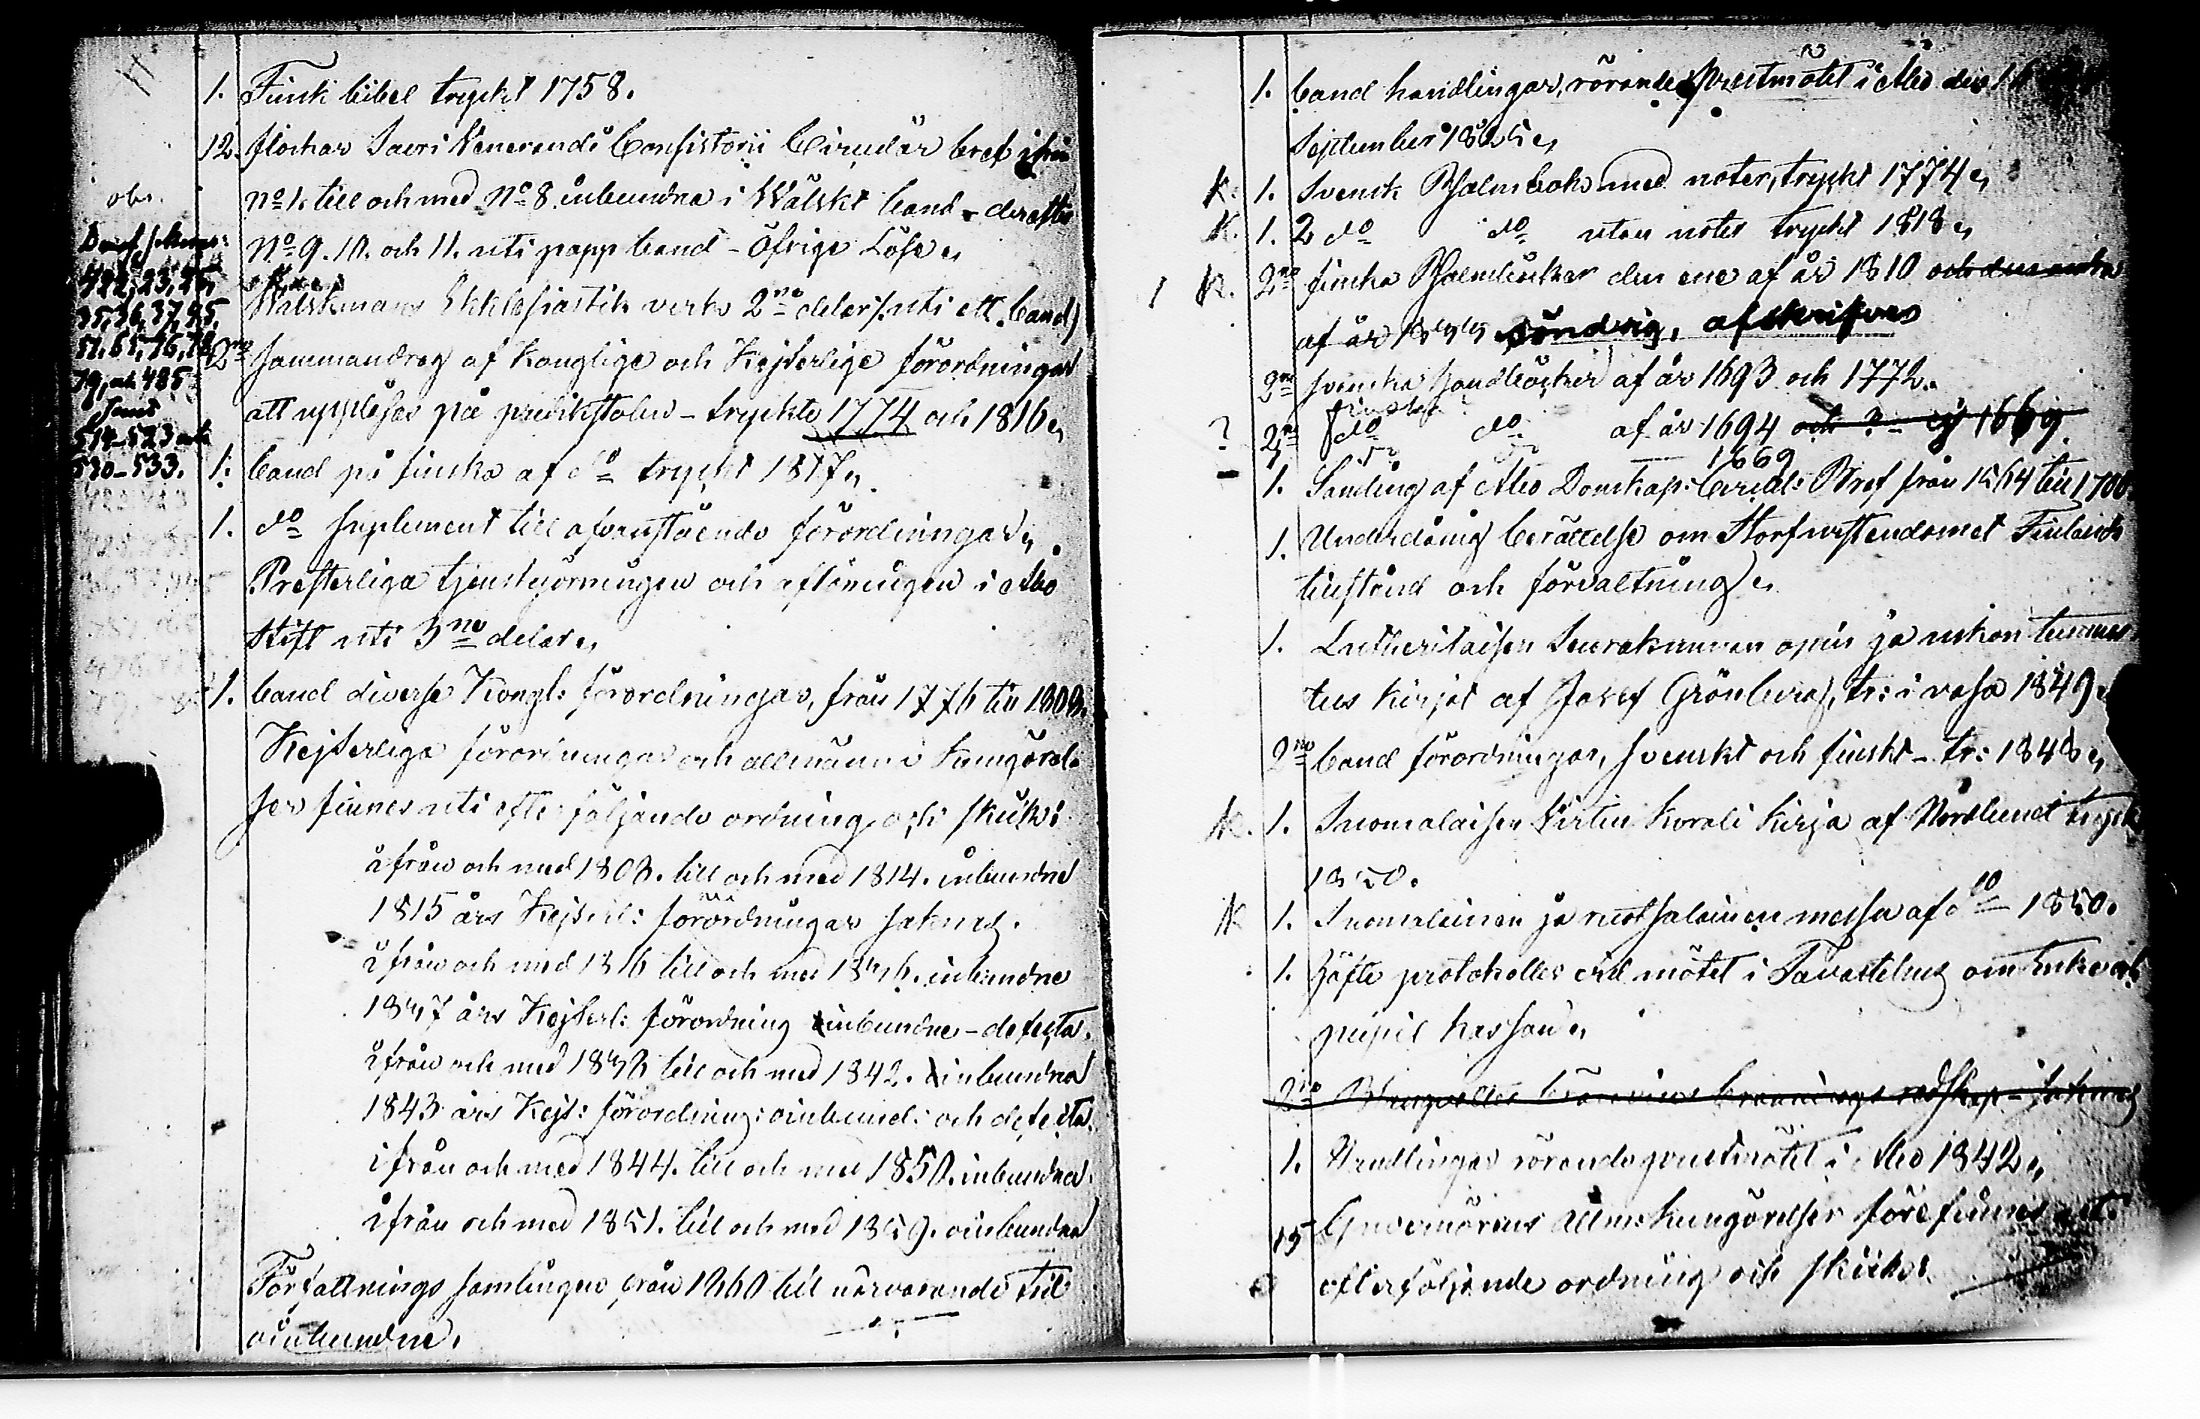 1. Finsk bibel tryckt 1758.
12. flockar Sacri Venerandi Consistorii Circulär bref ifrån
No 1. till och med No 8 inbundna i Wälskt band - derefter
No 9. 10. och 11. uti papp band - öfrige Löse,
obs.
422, 23, 25,
35, 36, 37, 95,
51, 65, 76, 78
79, och 485
samt
514-523 och
530-533.
Ekklesiastik verk 2ne delar (uti ett band)
2ne sammandrag af Konglige och Kejserlige förordningar
att uppläsas på predikstolen - tryckte 1774 och 1816,
1. band på finska af do tryckt 1817,
1. do Suplement till ofvanstående förordningar,
Presterliga tjenstgörningen och aflöningen i Åbo
Stift uti 3ne delar,
1. band diverse Kongl: förordningar, från 1776 till 1808.
Kejserliga förordningar och allmänna Kungörel-
ser finnes uti efterföljande ordning och skick:
ifrån och med 1808. till och med 1814. inbundne
1815 års Kejserl: förordningar saknas.
ifrån och med 1816 till och med 1826. inbundne
1827 års Kejserl: förordning oinbundne - defecta.
ifrån och med 1828 till och med 1842. inbundna
1843 års Kejs: förordning: oinbund: och defecta.
ifrån och med 1844. till och med 1850. inbundna
ifrån och med 1851. till och med 1859. oinbundna
Författnings samlingen från 1860 till närvarande tid
oinbundne.
1. band handlingar, rörande Prestmötet i Åbo den
September
K. 1. Svensk Psalmbok med noter, tryckt 1774,
K. 1. 2 do do utan noter tryckt 1818,
1 K. 2ne finska Psalmböcker den ene af år 1810 och den andra
af år söndrig, afskrifves
2ne svenska handböcker af år 1693 och 1772.
? 2ne finska do do af år 1694 och ? - ej 1669
1669
1. Samling af Åbo Domkap: Circul: Bref från 1564 till 1700
1. Underdånig berättelse om Storfurstendömet Finlands
tillstånd och förvaltning,
1. Lutherilaisen Seurakunnan opin ja uskon tunnus-
tus kirjat af Josef Grönberg, tr: i Vasa 1849,
2ne band förordningar, svenskt och finskt - tr: 1848,
K. 1. Suomalaisen Virsi Korali Kirja af Nordlund tryckt
1850.
K 1. Suomalainen ja ruotsalainen messu af do 1850.
1. häfte protokoller vid mötet i Tavastehus om Enke och
pupil kassan,
1. Handlingar rörande prestmötet i Åbo 1842,
15 Guvernörens Allm: kungörelser förefinnes uti
efterföljande ordning och skick: